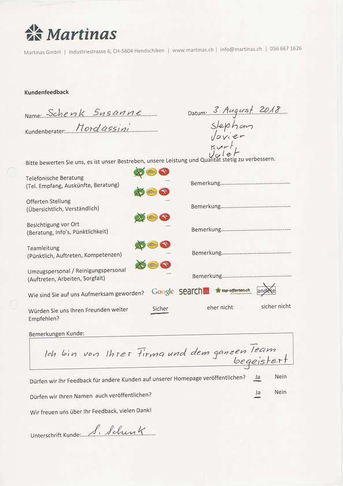 Martinas
Martinas GmbH | Industriestrasse 6, CH-5604 Hendschiken | www.martinas.ch | info@martinas.ch | 056 667 1626
Kundenfeedback
Name: Schenk Susanne Datum: 3. August 2018
Kundenberater: Mordassini Stephan
Javier
Kurt,
Valet
Bitte bewerten Sie uns, es ist unser Bestreben, unsere Leistung und Qualität stetig zu verbessern.
Telefonische Beratung
(Tel. Empfang, Auskünfte, Beratung) Bemerkung
Offerten Stellung
(Übersichtlich, Verständlich) Bemerkung
Besichtigung vor Ort
(Beratung, Info's, Pünktlichkeit) Bemerkung
Teamleitung
(Pünktlich, Auftreten, Kompetenzen) Bemerkung
Umzugspersonal / Reinigungspersonal
(Auftreten, Arbeiten, Sorgfalt) Bemerkung
Wie sind Sie auf uns Aufmerksam geworden? Google search top-offerten.ch andere
Würden Sie uns Ihren Freunden weiter Sicher eher nicht sicher nicht
Empfehlen?
Bemerkungen Kunde:
Ich bin von Ihrer Firma und dem ganzen Team
begeistert
Dürfen wir Ihr Feedback für andere Kunden auf unserer Homepage veröffentlichen? Ja Nein
Dürfen wir Ihren Namen auch veröffentlichen? Ja Nein
Wir freuen uns über Ihr Feedback, vielen Dank!
Unterschrift Kunde: S. Schenk